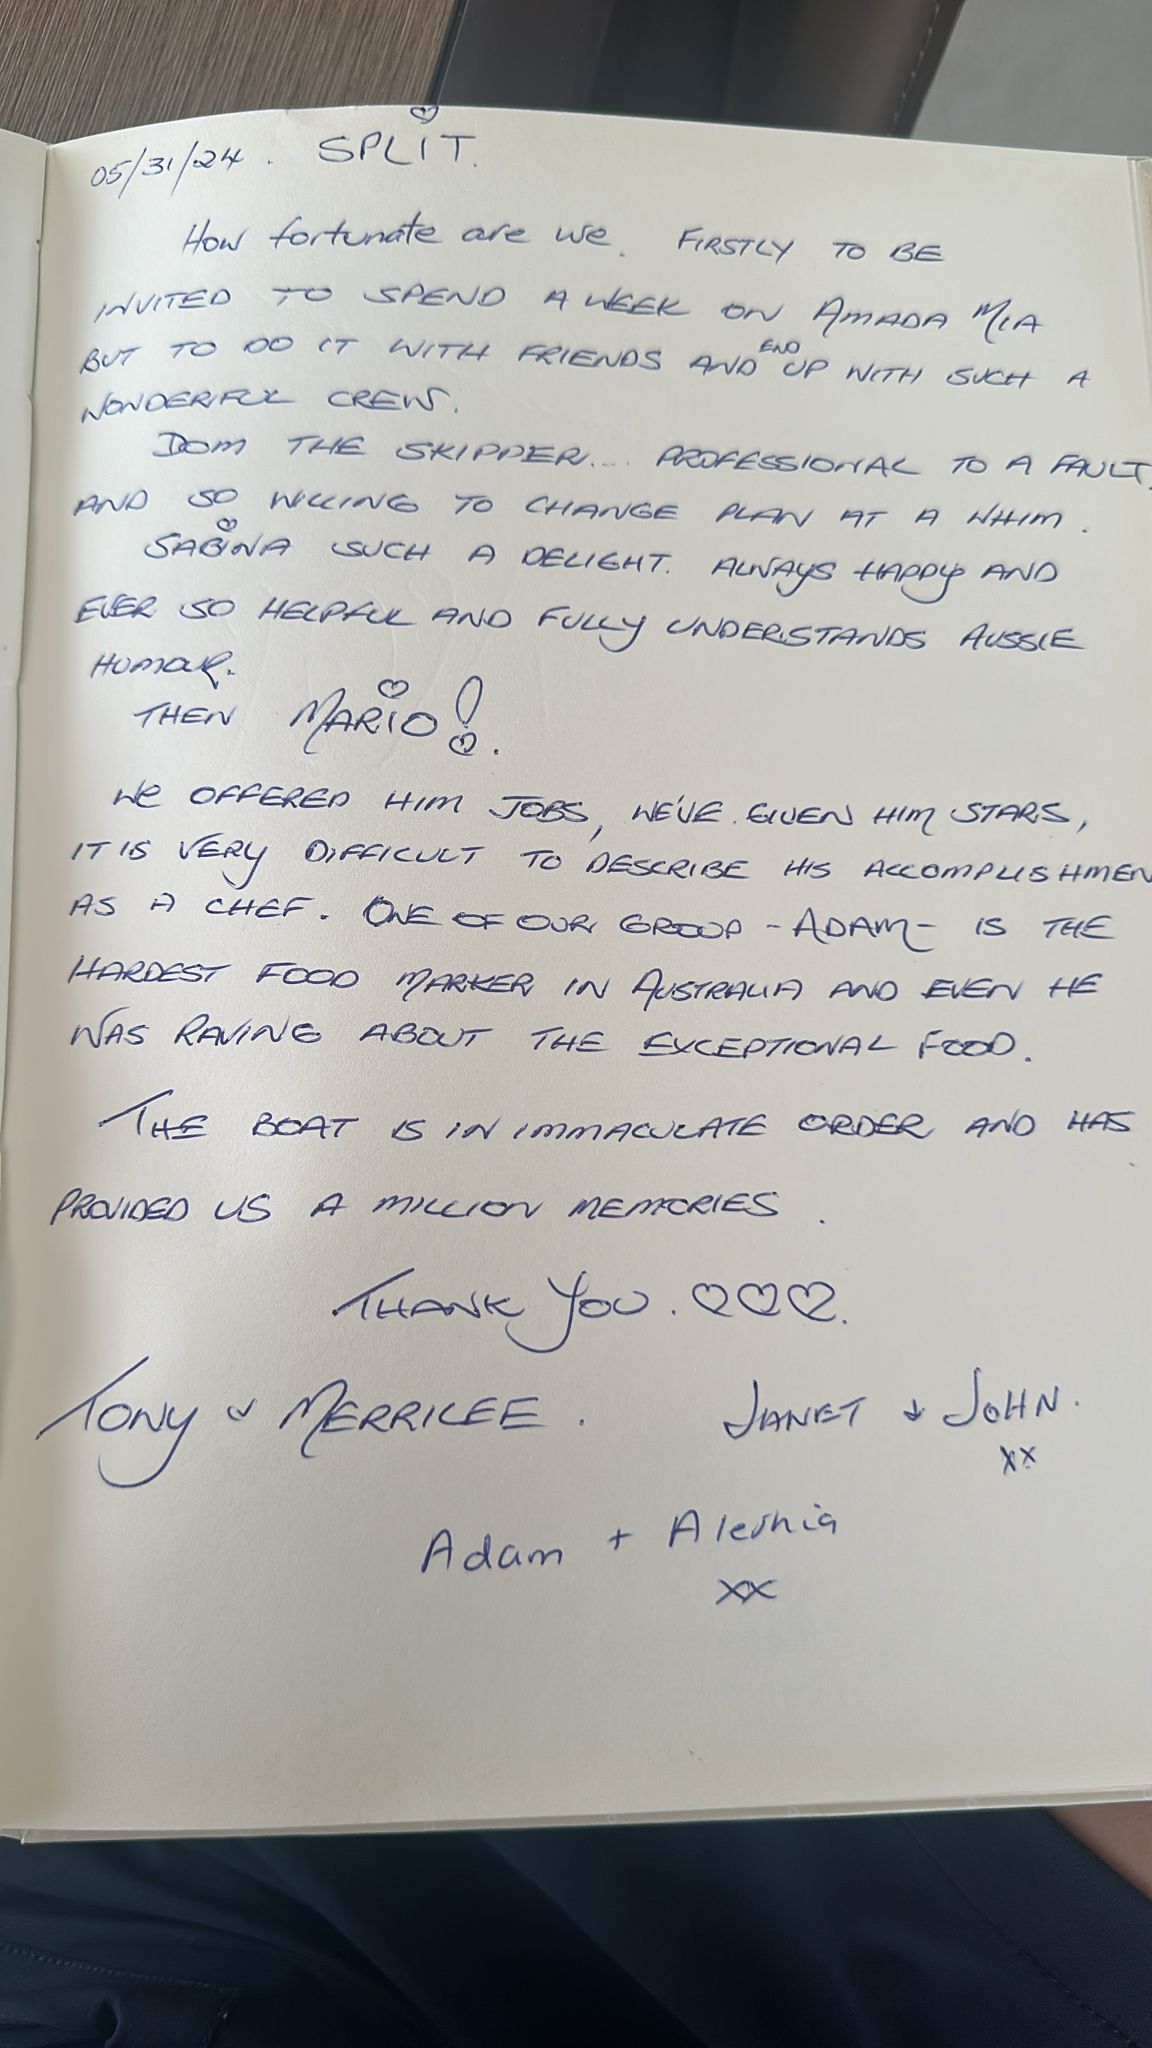 05/31/24. SPLIT.
How fortunate are we. FIRSTLY TO BE
INVITED TO SPEND A WEEK ON AMADA MIA
BUT TO DO IT WITH FRIENDS AND END UP WITH SUCH A
WONDERFUL CREW.
DOM THE SKIPPER... PROFESSIONAL TO A FAULT.
AND SO WILLING TO CHANGE PLAN AT A WHIM.
SABINA SUCH A DELIGHT. ALWAYS HAPPY AND
EVER SO HELPFUL AND FULLY UNDERSTANDS AUSSIE
HUMOUR.
THEN MARIO!
WE OFFERED HIM JOBS, WE'VE GIVEN HIM STARS,
IT IS VERY DIFFICULT TO DESCRIBE HIS ACCOMPLISHMEN
AS A CHEF. ONE OF OUR GROUP - ADAM - IS THE
HARDEST FOOD MARKER IN AUSTRALIA AND EVEN HE
WAS RAVING ABOUT THE EXCEPTIONAL FOOD.
THE BOAT IS IN IMMACULATE ORDER AND HAS
PROVIDED US A MILLION MEMORIES.
THANK YOU. ♡♡♡.
TONY & MERRILEE. JANET & JOHN.
xx
Adam + Aleshia
xx